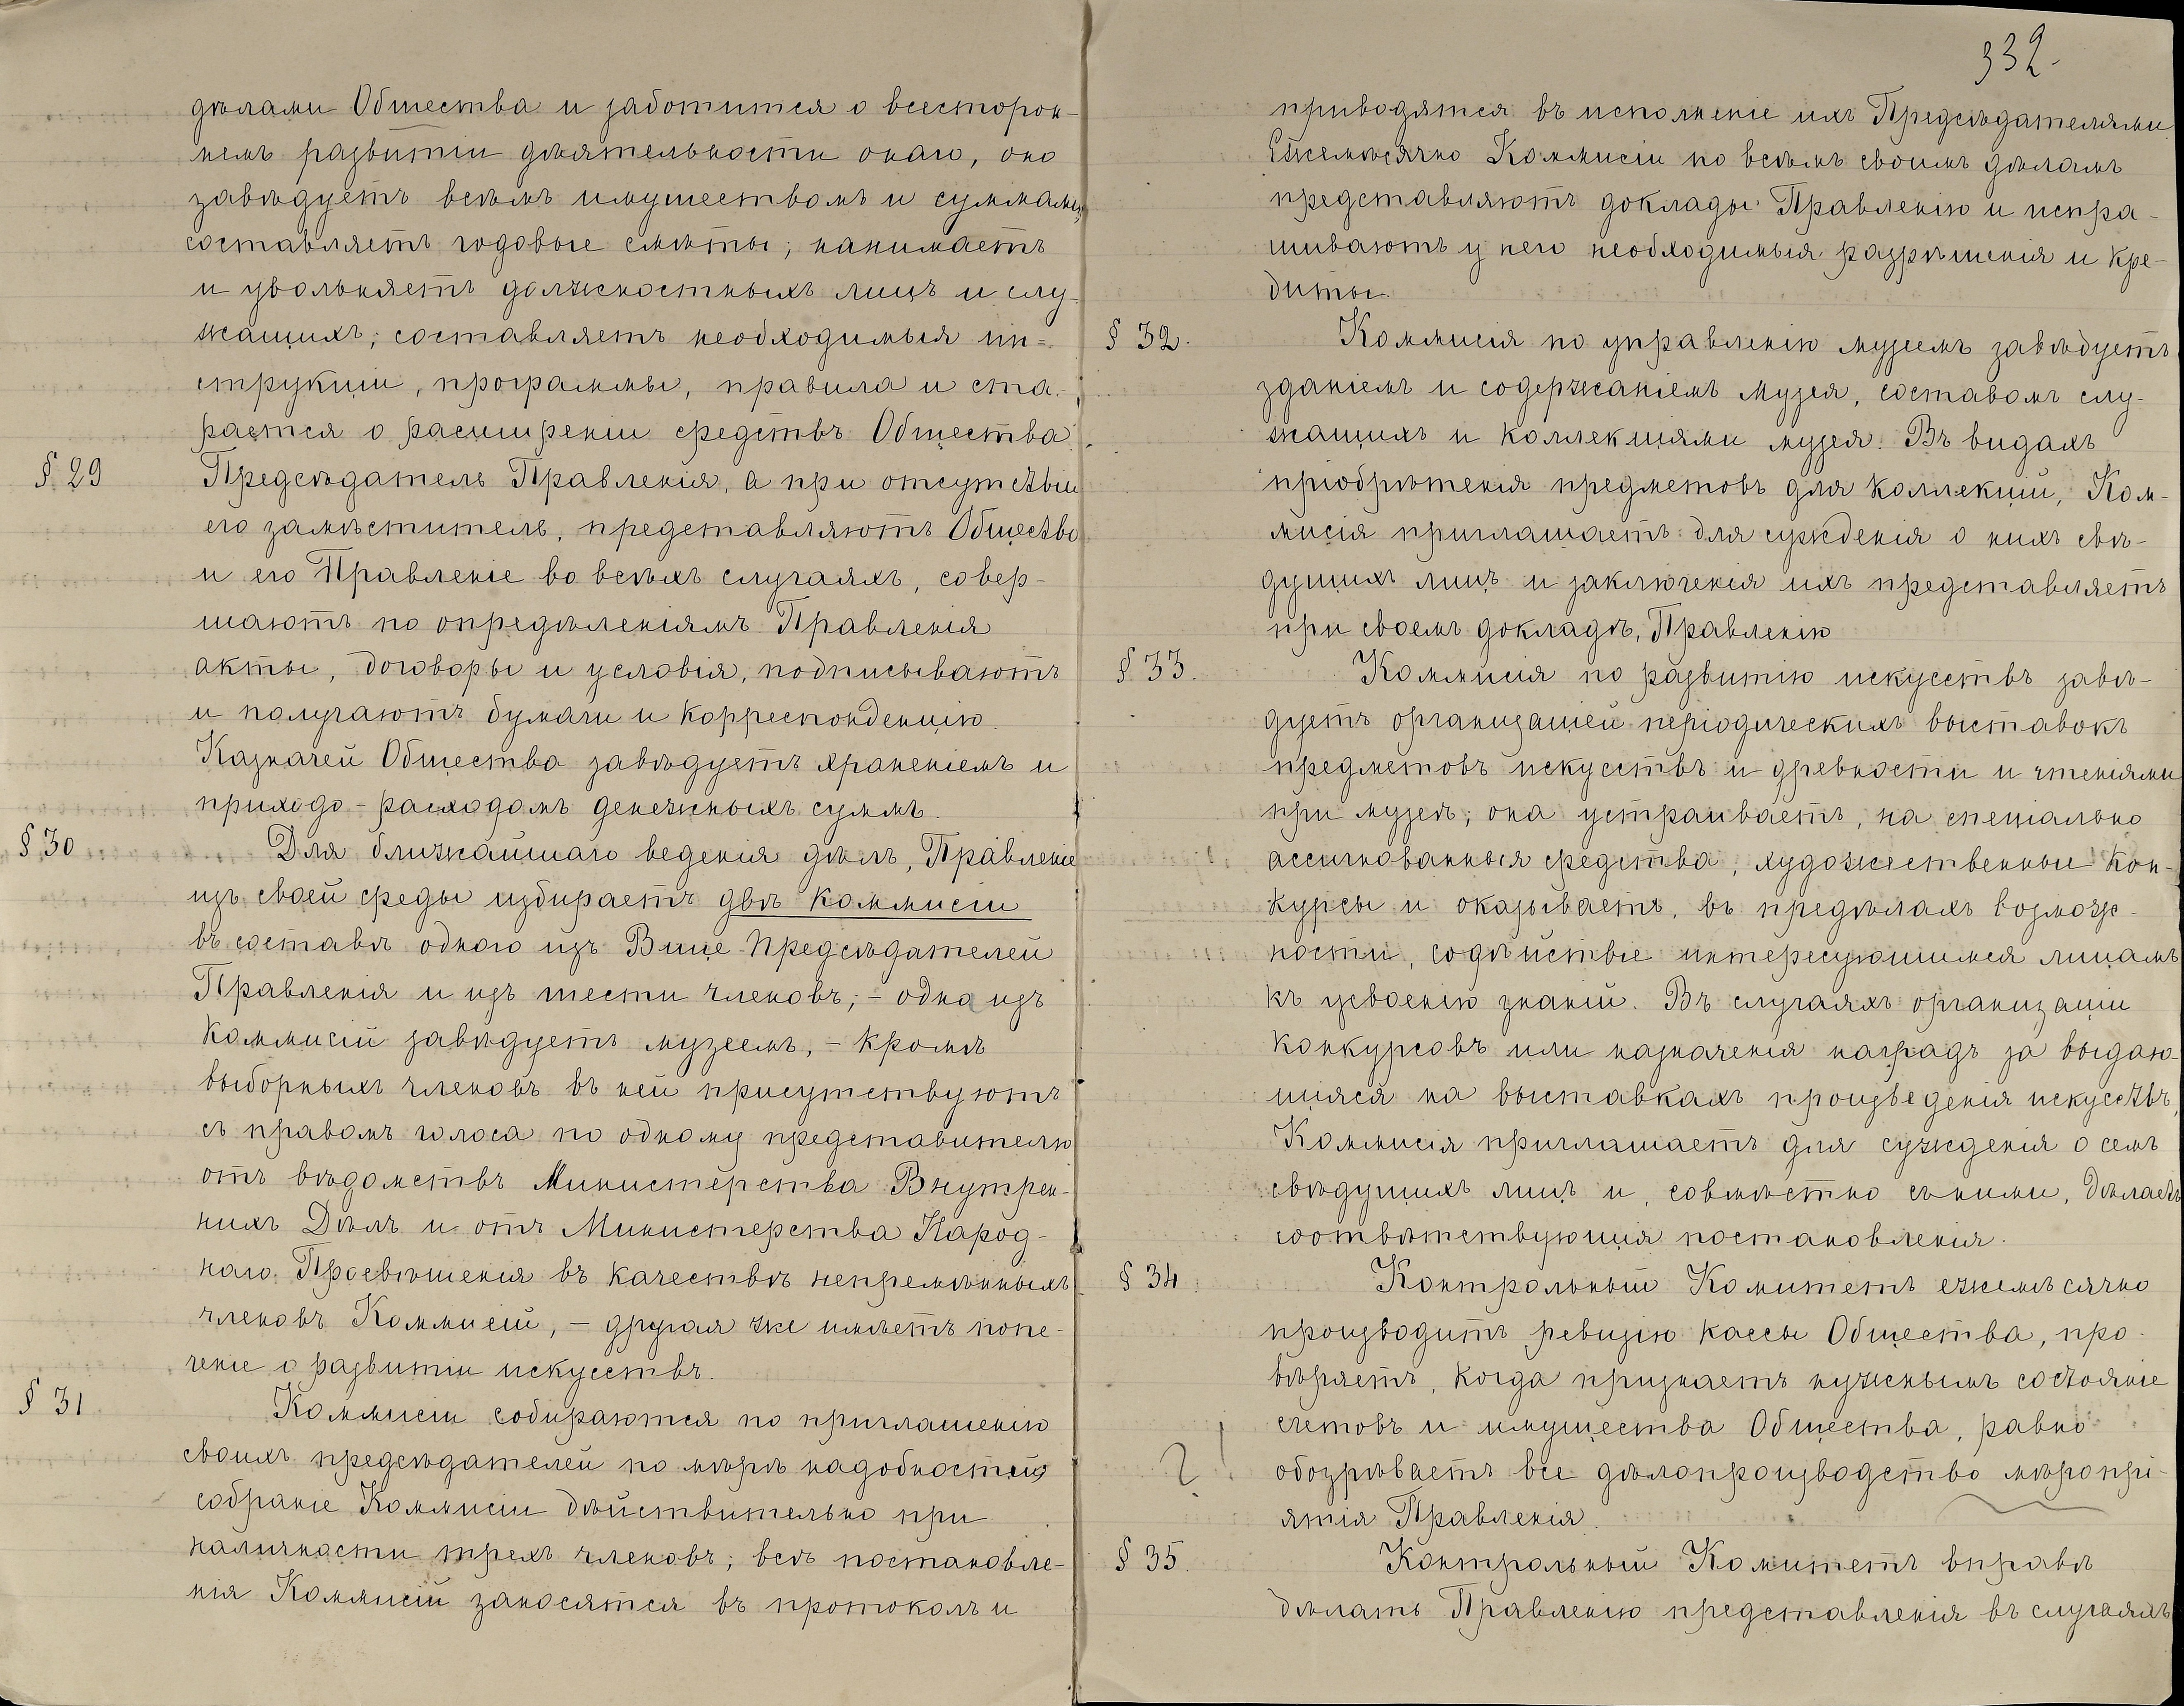 дѣлами Общества и заботится о всесторон-
немъ развитіи дѣятельности онаго, оно
завѣдуетъ всѣмъ имуществомъ и суммами,
составляетъ годовые смѣты; нанимаетъ
и увольняетъ должностныхъ лицъ и слу-
жащихъ; составляетъ необходимыя ин=
струкціи, программы, правила и ста-
рается о расширеніи средствъ Общества.
§ 29 Предсѣдатель Правленія, а при отсутствіи
его замѣститель, представляютъ Общество
и его Правленіе во всѣхъ случаяхъ, совер-
шаютъ по опредѣленіямъ Правленія
акты, договоры и условія, подписываютъ
и получаютъ бумаги и корреспонденцію.
Казначей Общества завѣдуетъ храненіемъ и
приходо-расходомъ денежныхъ суммъ.
§ 30 Для ближайшаго веденія дѣлъ, Правленіе
изъ своей среды избираетъ двѣ коммисіи
въ составѣ одного изъ Вице-Предсѣдателей
Правленія и изъ шести членовъ; - одна изъ
Коммисій завѣдуетъ музеемъ, - кромѣ
выборныхъ членовъ въ ней присутствуютъ
съ правомъ голоса по одному представителю
отъ вѣдомствъ Министерства Внутрен-
нихъ Дѣлъ и отъ Министерства Народ-
наго Просвѣщенія въ качествѣ непремѣнныхъ
членовъ Коммисіи, - другая же имѣетъ попе-
ченіе о развитіи искусствъ.
§ 31 Коммисіи собираются по приглашенію
своихъ предсѣдателей по мѣрѣ надобностей
собраніе Коммисіи дѣйствительно при
наличности трехъ членовъ; всѣ постановле-
нія Коммисій заносятся въ протоколъ и
332.
приводятся въ исполненіе ихъ Предсѣдателями.
Ежемѣсячно Коммисіи по всѣмъ своимъ дѣламъ
представляютъ доклады Правленію и испра-
шиваютъ у него необходимыя разрѣшенія и кре-
диты.
§ 32. Коммисія по управленію музеемъ завѣдуетъ
зданіемъ и содержаніемъ музея, составомъ слу-
жащихъ и коллекціями музея. Въ видахъ
пріобрѣтенія предметовъ для коллекціи, Ком-
мисія приглашаетъ для сужденія о нихъ свѣ-
дущихъ лицъ и заключенія ихъ представляетъ
при своемъ докладѣ, Правленію
§ 33. Коммисія по развитію искусствъ завѣ-
дуетъ организаціей періодическихъ выставокъ
предметовъ искусствъ и древности и чтеніями
при музеѣ; она устраиваетъ, на спеціально
ассигнованныя средства, художественные кон-
курсы и оказываетъ, въ предѣлахъ возмож-
ности, содѣйствіе интересующимся лицамъ
къ усвоенію знаній. Въ случаяхъ организаціи
конкурсовъ или назначенія наградъ за выдаю-
щіяся на выставкахъ произведенія искусствъ,
Коммисія приглашаетъ для сужденія о семъ
свѣдущихъ лицъ и, совмѣстно съ ними, дѣлаетъ
соотвѣтствующія постановленія.
§ 34 Контрольный Комитетъ ежемѣсячно
производитъ ревизію кассы Общества, про-
вѣряетъ, когда признаетъ нужнымъ состояніе
счетовъ и имущества Общества, равно
? обозрѣваетъ все дѣлопроизводство мѣропрі-
ятія Правленія.
§ 35. Контрольный Комитетъ вправѣ
дѣлать Правленію представленія въ случаяхъ